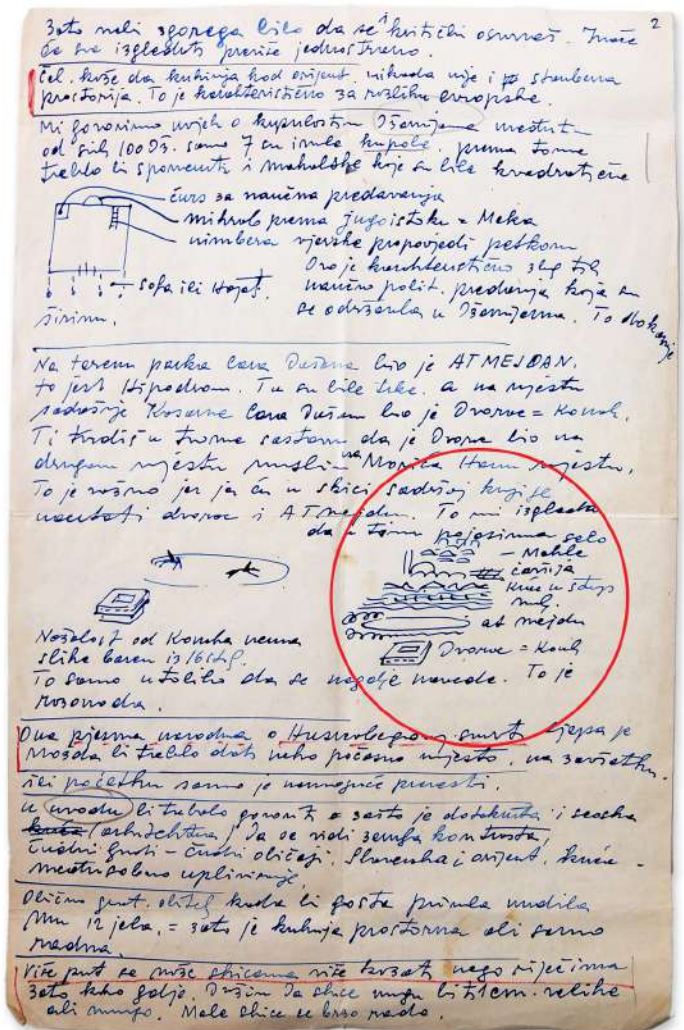 2
Zato nebi zgorega bilo da se kritički osvrneš. Inače
će sve izgledati previše jednostrano.
Čel. kaže da kuhinja kod orijent. nikada nije i stambena
prostorija. To je karakteristično za razliku evropske.
Mi govorimo uvjek o kupulastim Džamijama međutim
od svih 100 Dž. samo 7 su imale kupole. prema tome
trebalo bi spomenuti i mahalske koje su bile kvadratične
ćurs za naučna predavanja
mihrob prema jugoistoku = Meka
nimbera vjerske propovjedi petkom
Ovo je karakteristično zbog tih
sofa ili Hajat.
naučno polit. predavanja koja su
se održavala u Džamijama. To dokazuje
širinu.
Na terenu parka Cara Dušana bio je ATMEJDAN.
to jest Hipodrom. Tu su bile trke. a na mjestu
sadašnje Kasarne Cara Dušana bio je Dvorac = Konak.
Ti tvrdiš u tvome sastavu da je Dvorac bio na
drugom mjestu mislim na Morića Hanu mjestu.
To je važno jer ja ću u skici sadržaj knjige
nacrtati dvorac i ATmejdan. To mi izgleda
da u tome pojasima selo
– Mahle
čaršija
Kuće u
at mejdan
Dvorac = Konak
Nažalost od Konaka nema
slike barem iz 16 st.
To samo utoliko da se negdje navede. To je
Dva pjesma narodna o Husrevbegovoj smrti ljepa je
možda bi trebalo dati neko počasno mjesto, na završetku
ili početku samo je nemoguće prevesti.
u uvodu bi trebalo govoriti o zašto je dotaknuta i seoska
kuća (arhitektura) Da se vidi
čudni ljudi – čudni običaji. Slavenska i orijent. kuća –
međusobno uplivisanje
Obično gost. obitelj kada bi gosta primila nudila
mu 12 jela. = zato je kuhinja prostorna ali samo
radna.
Više put se može skicama više kazati nego riječima
zato kako gdje. Držim da skice mogu biti
ali mnogo. Male skice se brzo rade.